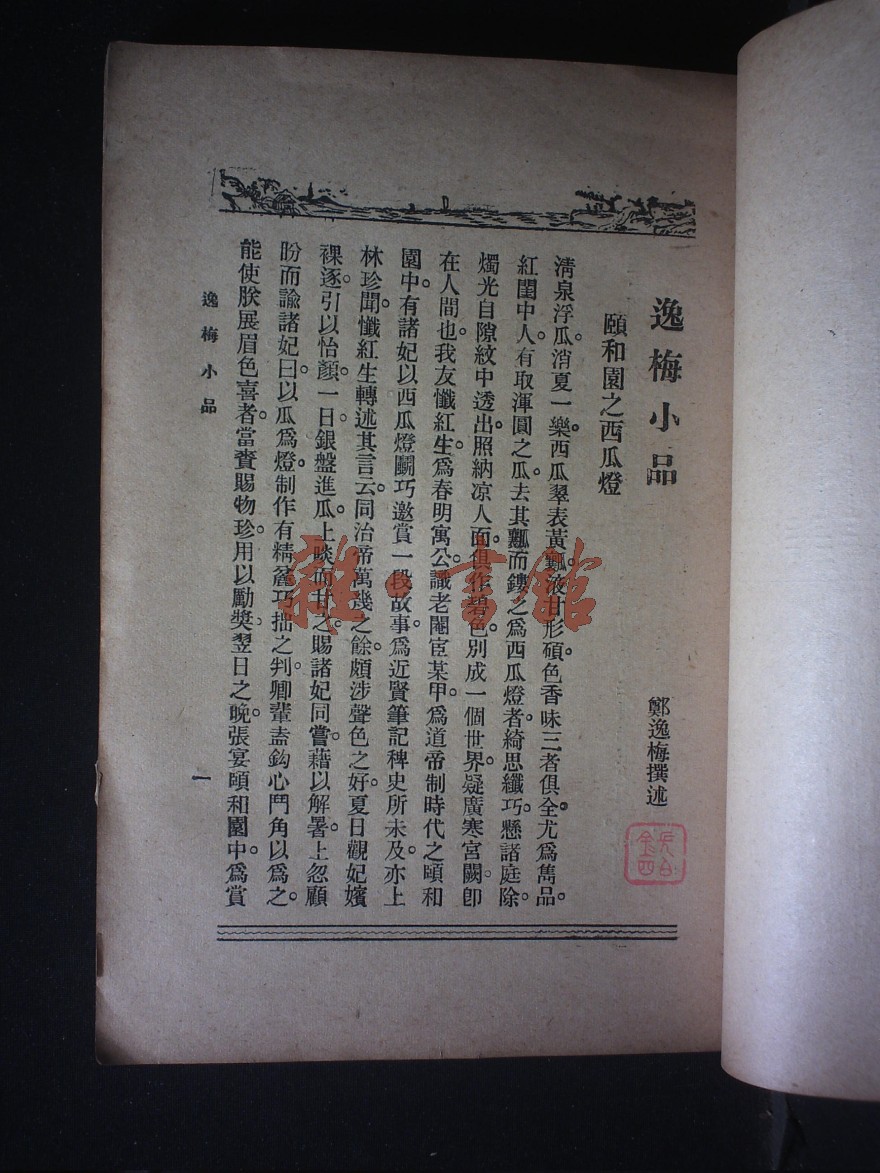 逸梅小品
鄭逸梅撰述
頤和園之西瓜燈
淸泉浮瓜。消夏一樂。西瓜翠表黃瓤。液甘形碩。色香味三者俱全。尤爲雋品。
紅閨中人。有取渾圓之瓜。去其瓤而鏤之爲西瓜燈者。綺思纖巧。懸諸庭除。
燭光自隙紋中透出。照納凉人面。俱作碧色。別成一個世界。疑廣寒宮闕。卽
在人間也。我友懺紅生。爲春明寓公。識老閹宦某甲。爲道帝制時代之頤和
園中。有諸妃以西瓜燈鬭巧邀賞一段故事。爲近賢筆記稗史所未及。亦上
林珍聞。懺紅生轉述其言云。同治帝萬幾之餘。頗涉聲色之好。夏日觀妃嬪
裸逐。引以怡顏。一日。銀盤進瓜。上啖而甘之。賜諸妃同嘗。藉以解暑。上忽顧
盼而諭諸妃曰。以瓜爲燈。制作有精麄巧拙之判。卿輩盍鈎心鬥角以爲之。
能使朕展眉色喜者。當賚賜物珍。用以勵奬。翌日之晚。張宴頤和園中。爲賞
逸梅小品
一
雜·書館